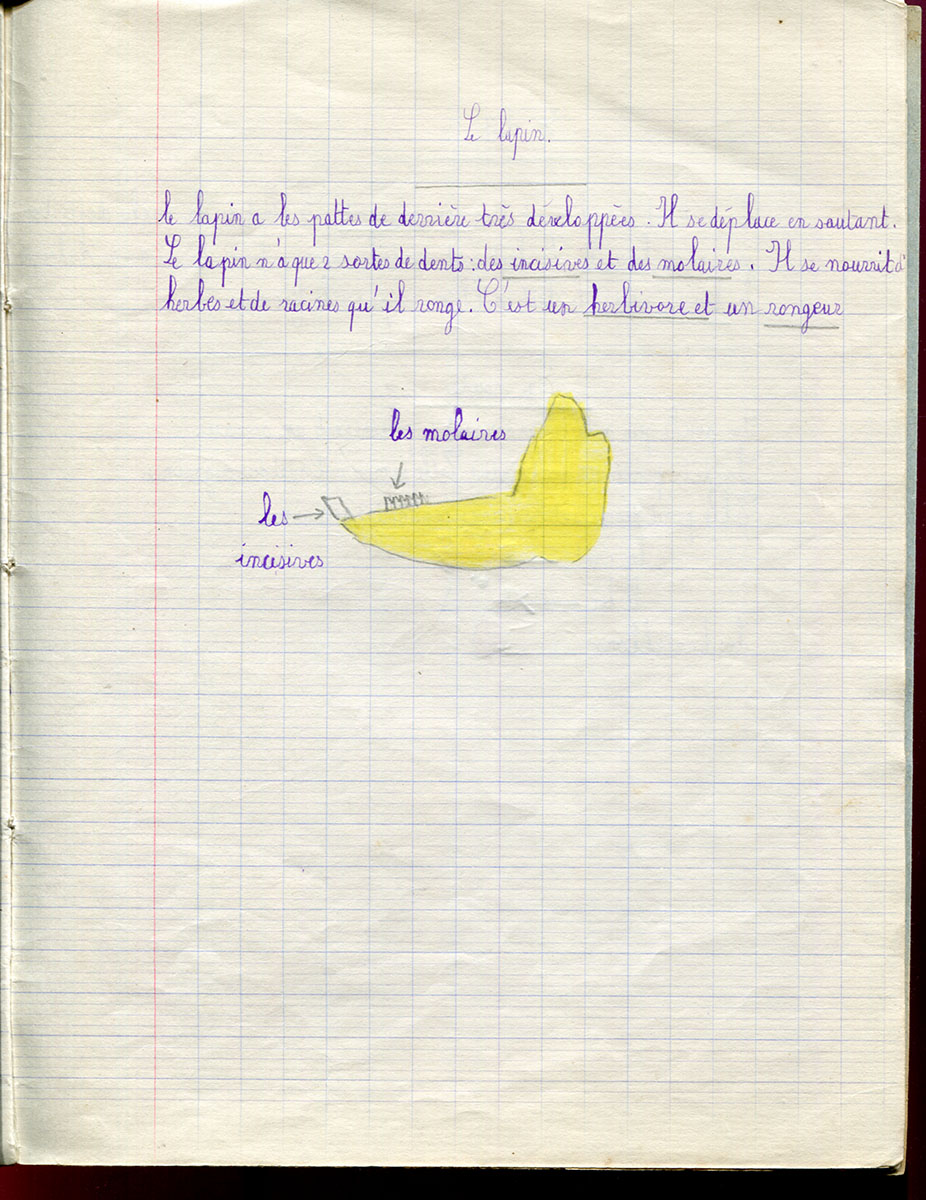 Le lapin.
le lapin a les pattes de derrière très développées. Il se déplace en sautant.
Le lapin n'a que 2 sortes de dents : des incisives et des molaires. Il se nourrit d'
herbes et de racines qu'il ronge. C'est un herbivore et un rongeur
les molaires
les
incisives